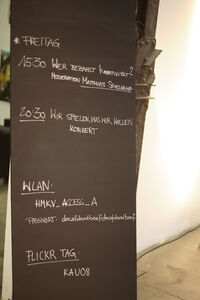 * FREITAG
15:30 WER BEZAHLT KREATIVITÄT?
MODERATION MATTHIAS SPIELKAMP
20:30 WIR SPIELEN, WAS WIR WOLLEN
KONZERT
WLAN:
HMKV_ACCESS_A
PASSWORT:
FLICKR TAG:
KAU08